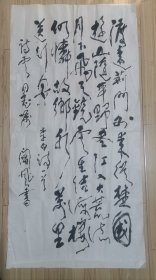 渡远荆門外来從楚國
遊山随平野尽江入大荒流
月下飞天镜云生结海楼
仍憐故鄉水万里
送行舟 李白诗
書